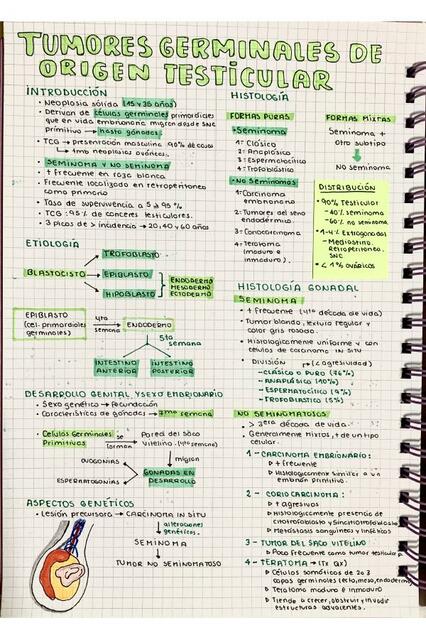 TUMORES GERMINALES DE
ORIGEN TESTICULAR
INTRODUCCIÓN
• Neoplasia sólida (15 y 35 años)
• Derivan de células germinales primordiales
que en vida embrionaria, migran desde SNC
primitivo → hasta gónadas.
• TCG → presentación masculina 90% de casos
↳ 1mo neoplasias ováricas.
SEMINOMA Y NO SEMINOMA
• + frecuente en raza blanca
• Frecuente localizado en retroperitoneo
como primario
• Tasa de supervivencia a 5 a 95%
• TCG: 95% de canceres testiculares.
• 3 picos de > incidencia → 20, 40 y 60 años
ETIOLOGÍA
TROFOBLASTO
BLASTOCISTO
EPIBLASTO
HIPOBLASTO
ENDODERMO
MESODERMO
ECTODERMO
EPIBLASTO
(cel. primordiales
germinales)
4ta
semana
ENDODERMO
5ta
semana
INTESTINO
ANTERIOR
INTESTINO
POSTERIOR
DESARROLLO GENITAL Y SEXO EMBRIONARIO
• Sexo genético → fecundación
• Características de gónadas → 7ma semana
• Células Germinales
Primitivas
se
forman
Pared del saco
Vitelino
migran
OVOGONIAS
ESPERMATOGONIAS
GONADAS EN
DESARROLLO
ASPECTOS GENÉTICOS
• Lesión precursora → CARCINOMA IN SITU
alteraciones
genéticas.
SEMINOMA
TUMOR NO SEMINOMATOSO
HISTOLOGÍA
FORMAS PURAS
• Seminoma
1: Clásico
2: Anaplásico
3: Espermatocítico
4: Trofoblastico
• No Seminomas
1: Carcinoma
embrionario
2: Tumores del seno
endodérmico.
3: Coriocarcinoma
4: Teratoma
(maduro e
inmaduro).
FORMAS MIXTAS
Seminoma +
otro subtipo
No seminoma
DISTRIBUCIÓN
• 90% Testicular
- 40% seminoma
- 60% no seminoma
• 1-4% Extragonadal
- Mediastino,
Retroperitoneo,
SNC
• < 1% ováricos
HISTOLOGÍA GONADAL
SEMINOMA
• + Frecuente (4ta década de vida)
• Tumor blando, textura regular y
color gris rosado.
• Histologicamente uniforme y con
células de carcinoma IN SITU
• División (agresividad)
- CLÁSICO O PURO
- ANAPLÁSICO (10%)
- ESPERMATOCÍTICO
- TROFOBLÁSTICO
NO SEMINOMATOSOS
• > 3era década de vida.
• Generalmente mixtos, + de un tipo
celular.
1 - CARCINOMA EMBRIONARIO:
+ frecuente
Histológicamente similar a un
embrión primitivo.
2 - CORIOCARCINOMA:
+ agresivos
Histologicamente presencia de
citotrofoblasto y sincitiotrofoblasto
Metástasis sanguíneas y linfáticas
3 - TUMOR DEL SACO VITELINO
Poco frecuente como tumor testicular
4 - TERATOMA → (Tx Qx)
Células somáticas de 2 o 3
capas germinales (ecto, meso, endodermo)
Teratoma maduro e inmaduro
Tiende a crecer, obstruir e invadir
estructuras adyacentes.